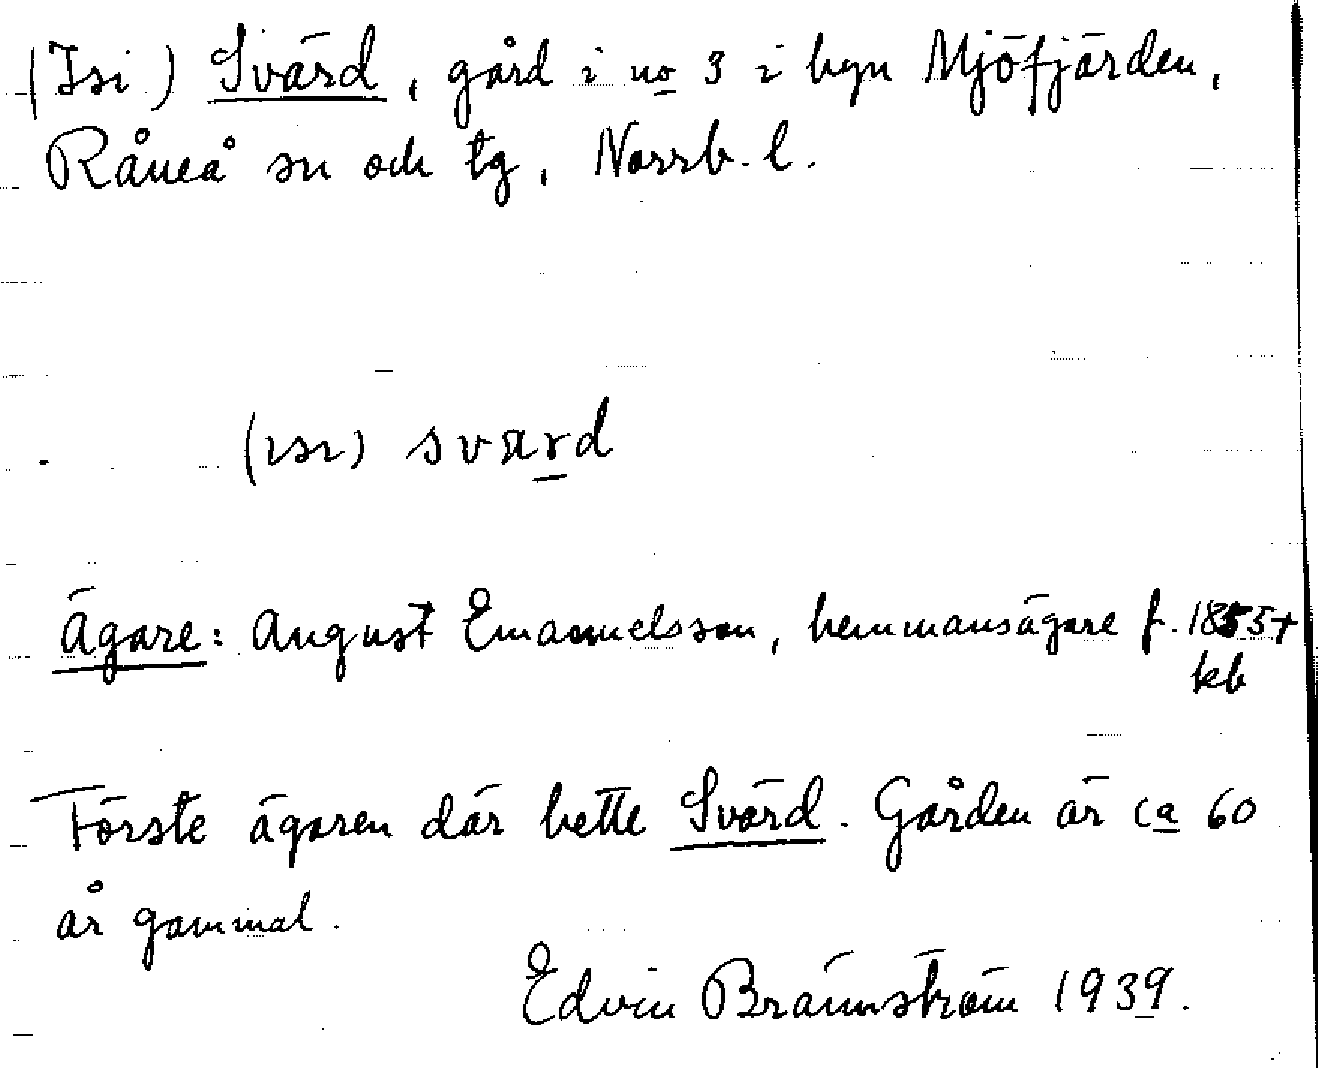 (Isi) Svärd, gård i no 3 i byn Mjöfjärden,
Råneå sn och tg, Norrb. l.
(ısı) sværd
Ägare: August Emanuelsson, hemmansägare f. 1855 +
kb
Förste ägaren där hette Svärd. Gården är ca 60
år gammal.
Edvin Brännström 1939.